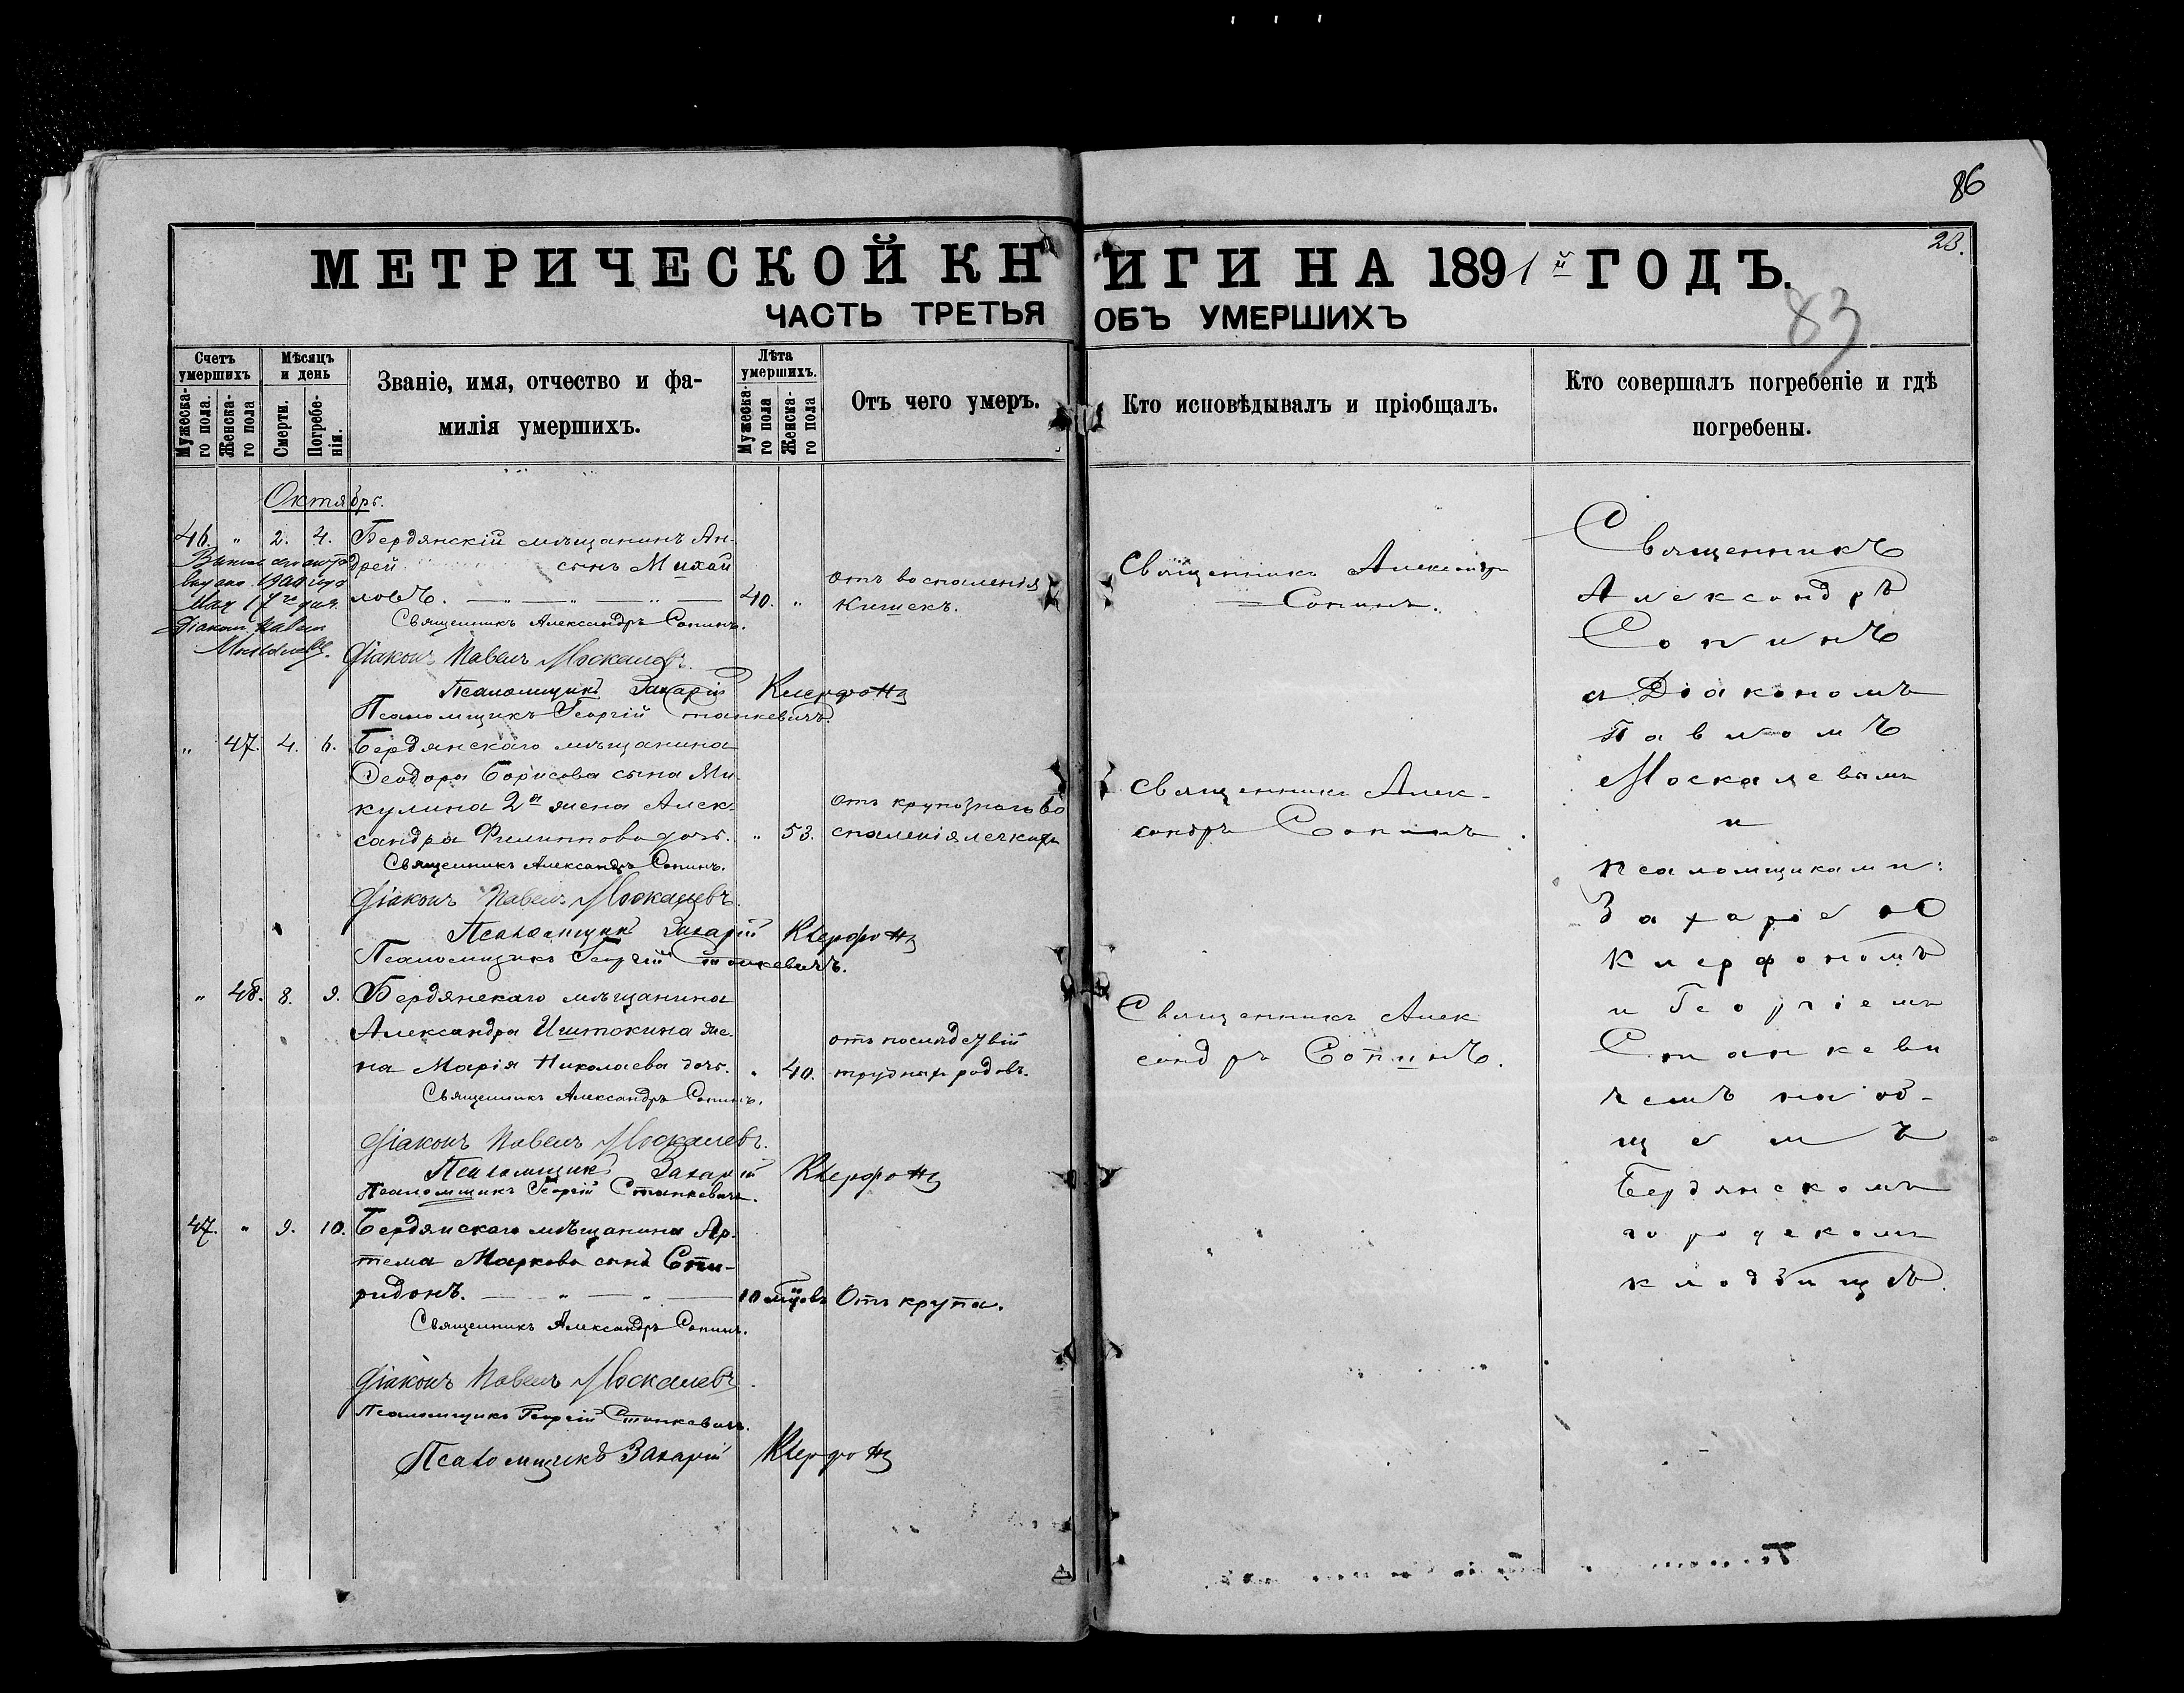 86
28.
МЕТРИЧЕСКОЙ КНИГИ НА 1891й ГОДЪ.
83
ЧАСТЬ ТРЕТЬЯ ОБЪ УМЕРШИХЪ
Счетъ умершихъ
Мужеска-го пола.
Женска-го пола
Мѣсяцъ и день
Смерти.
Погребе-нія.
Званіе, имя, отчество и фа-
милія умершихъ.
Лѣта умершихъ.
Мужеска-го пола
Женска-го пола
Отъ чего умеръ.
Кто исповѣдывалъ и пріобщалъ.
Кто совершалъ погребеніе и гдѣ
погребены.
Октябрь.
46. " 2. 4. Бердянскій мѣщанинъ Ан-
дрей сынъ Михай
ловъ. 40. "
отъ воспаленія
кишекъ.
Священникъ Александръ
Сопинъ.
выдано 1900 года
Мая 17го дня.
Діаконъ Павелъ
Москалевъ.
Священникъ Александръ Сопинъ.
Діаконъ Павелъ Москалевъ.
Псаломщикъ Захарій Клерфонъ
Псаломщикъ Георгій Станкевичъ.
" 47. 4. 6. Бердянскаго мѣщанина
Ѳеодора Борисова сына Ми-
кулина 2я жена Алек-
сандра Филиппова дочь. " 53.
отъ крупознаго во
спаленія легкихъ
Священникъ Алек-
сандръ Сопинъ.
Священникъ Александръ Сопинъ.
Діаконъ Павелъ Москалевъ.
Псаломщикъ Захарій Клерфонъ
Псаломщикъ Георгій Станкевичъ.
" 48. 8. 9. Бердянскаго мѣщанина
Александра Иштокина же-
на Марія Николаева дочь. " 40.
отъ послѣдствій
трудныхъ родовъ.
Священникъ Алек
сандръ Сопинъ.
Священникъ Александръ Сопинъ.
Діаконъ Павелъ Москалевъ.
Псаломщикъ Захарій Клерфонъ
Псаломщикъ Георгій Станкевичъ.
47. " 9. 10. Бердянскаго мѣщанина Ар-
тема Маркова сынъ Спи-
ридонъ. 10 мѣс. Отъ крупа.
Священникъ Александръ Сопинъ.
Діаконъ Павелъ Москалевъ
Псаломщикъ Георгій Станкевичъ.
Псаломщикъ Захарій Клерфонъ
Священникъ
Александръ
Сопинъ
съ Діакономъ
Павломъ
Москалевымъ
и
псаломщиками:
Захаріею
Клерфономъ
и Георгіемъ
Станкеви
чемъ на об-
щемъ
Бердянскомъ
городскомъ
кладбищѣ.